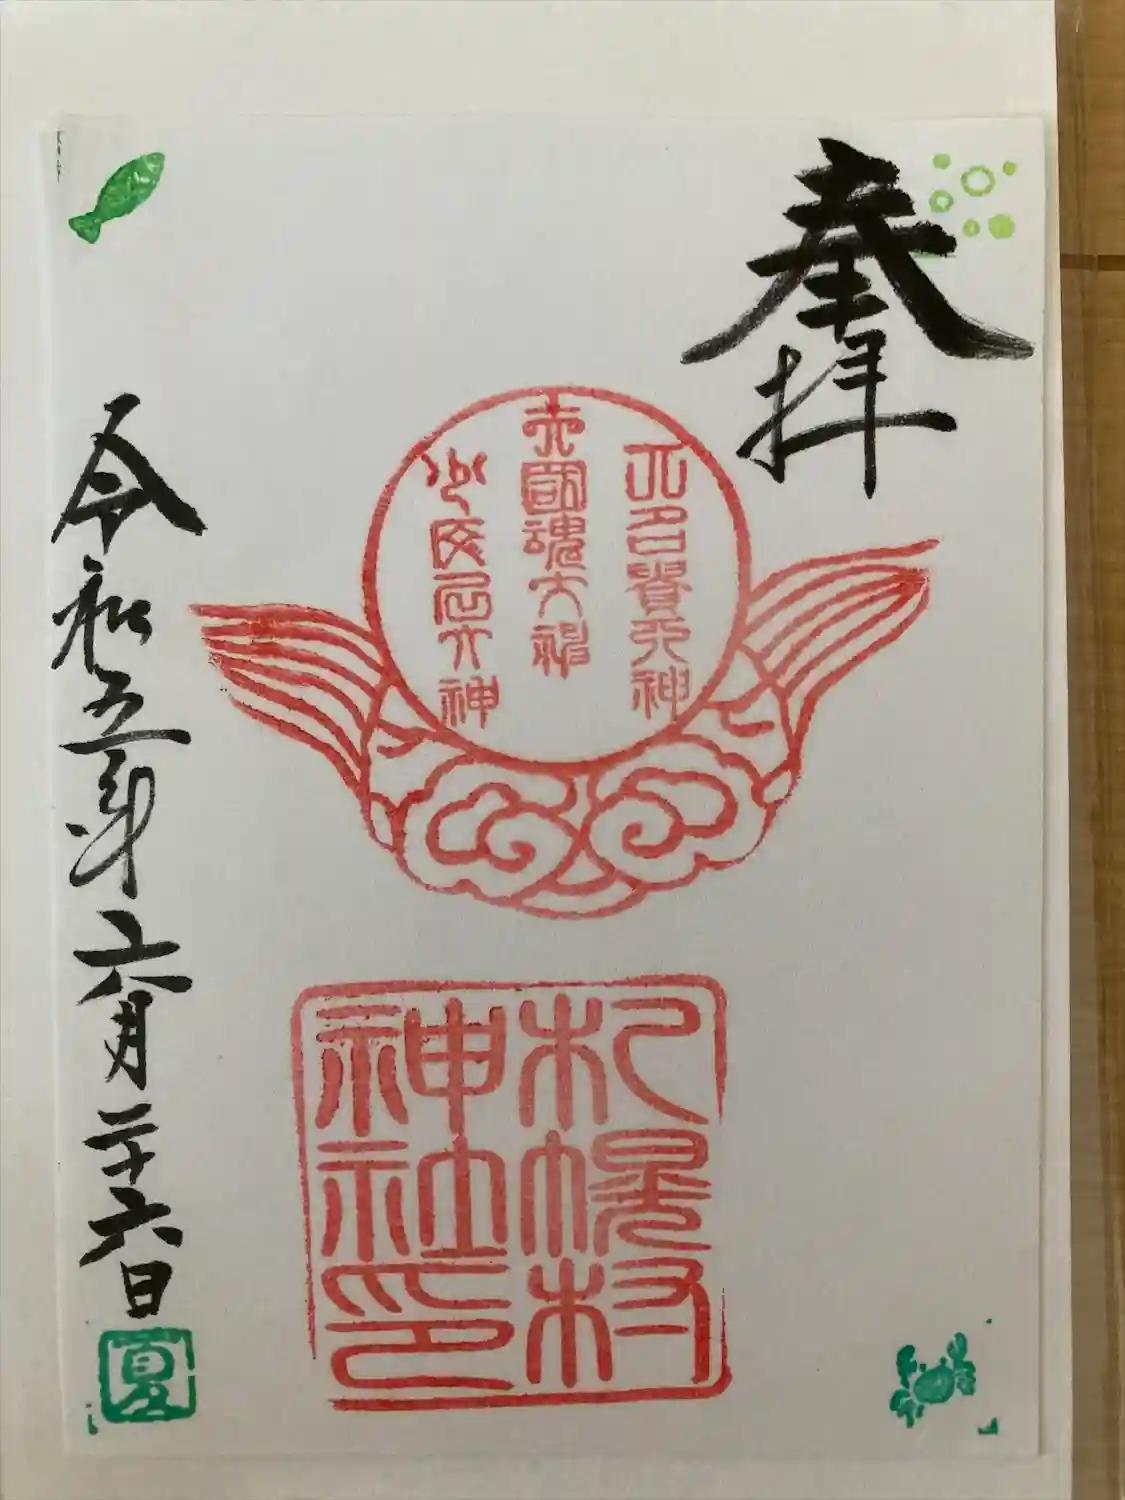 奉拝
大名貴大神
大國魂大神
少彦名大神
札幌村
神社印
令和五年六月二十六日
夏